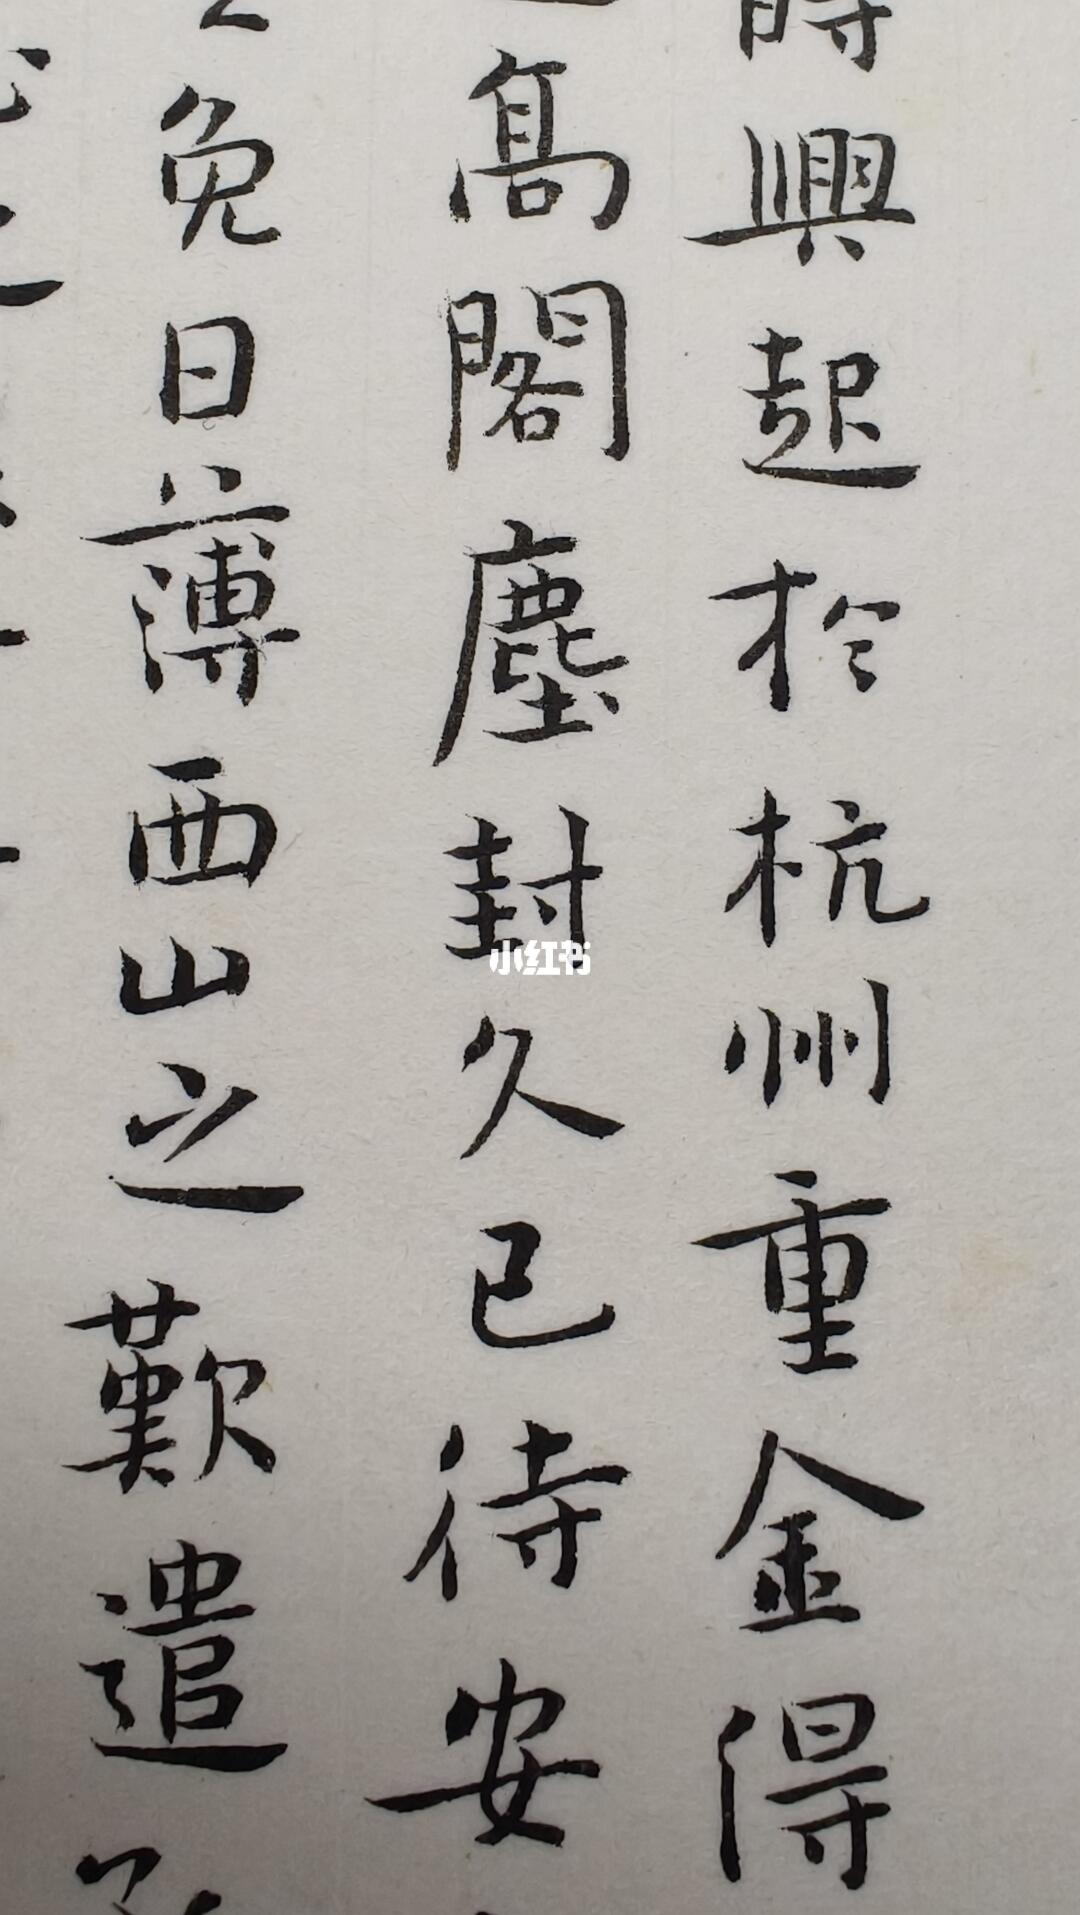 時興起於杭州重金得
高閣塵封久已待安
免日薄西山之歎遣
小红书